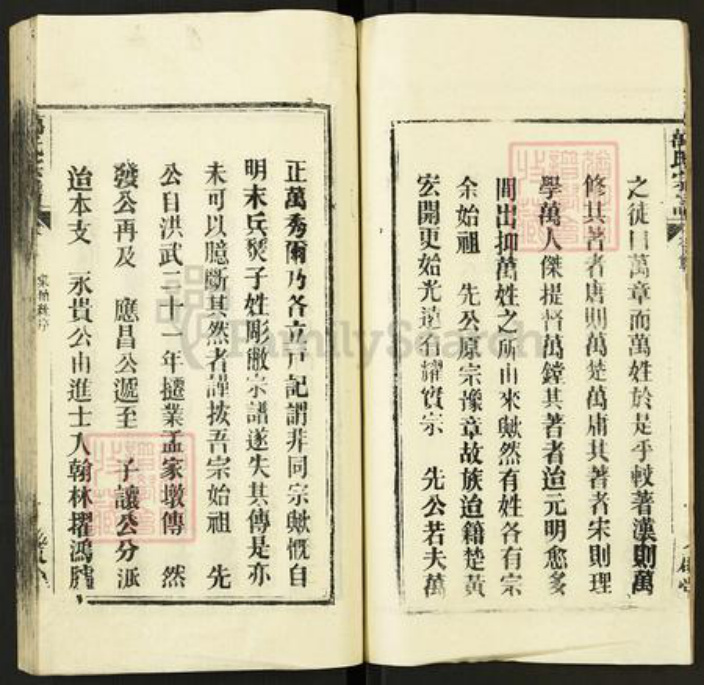 之徒曰萬章而萬姓於是乎較著漢則萬
修其著者唐則萬楚萬庸其著者宋則理
學萬人傑提督萬鏜其著者迨元明愈多
間出抑萬姓之所由來歟然有姓各有宗
余始祖 先公原宗豫章故族迨籍楚黃
宏開更始光遠有耀實宗 先公若夫萬
正萬秀爾乃各立戶記謂非同宗歟慨自
明末兵燹子姓彫敝宗譜遂失其傳是亦
未可以臆斷其然者謹按吾宗始祖 先
公自洪武二十一年遷業孟家墩傳 然
發公再及 應昌公遞至 子讓公分派
迨本支 永貴公由進士入翰林擢鴻臚
FamilySearch